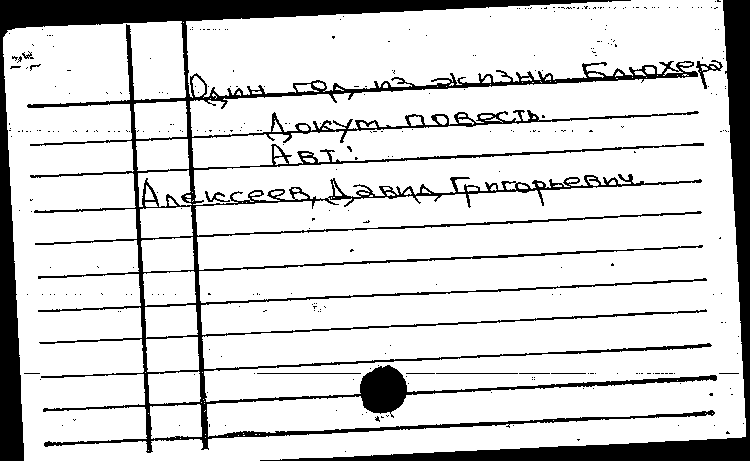 Один год из жизни Блюхера
Докум. повесть.
Авт.:
Алексеев, Давид Григорьевич.